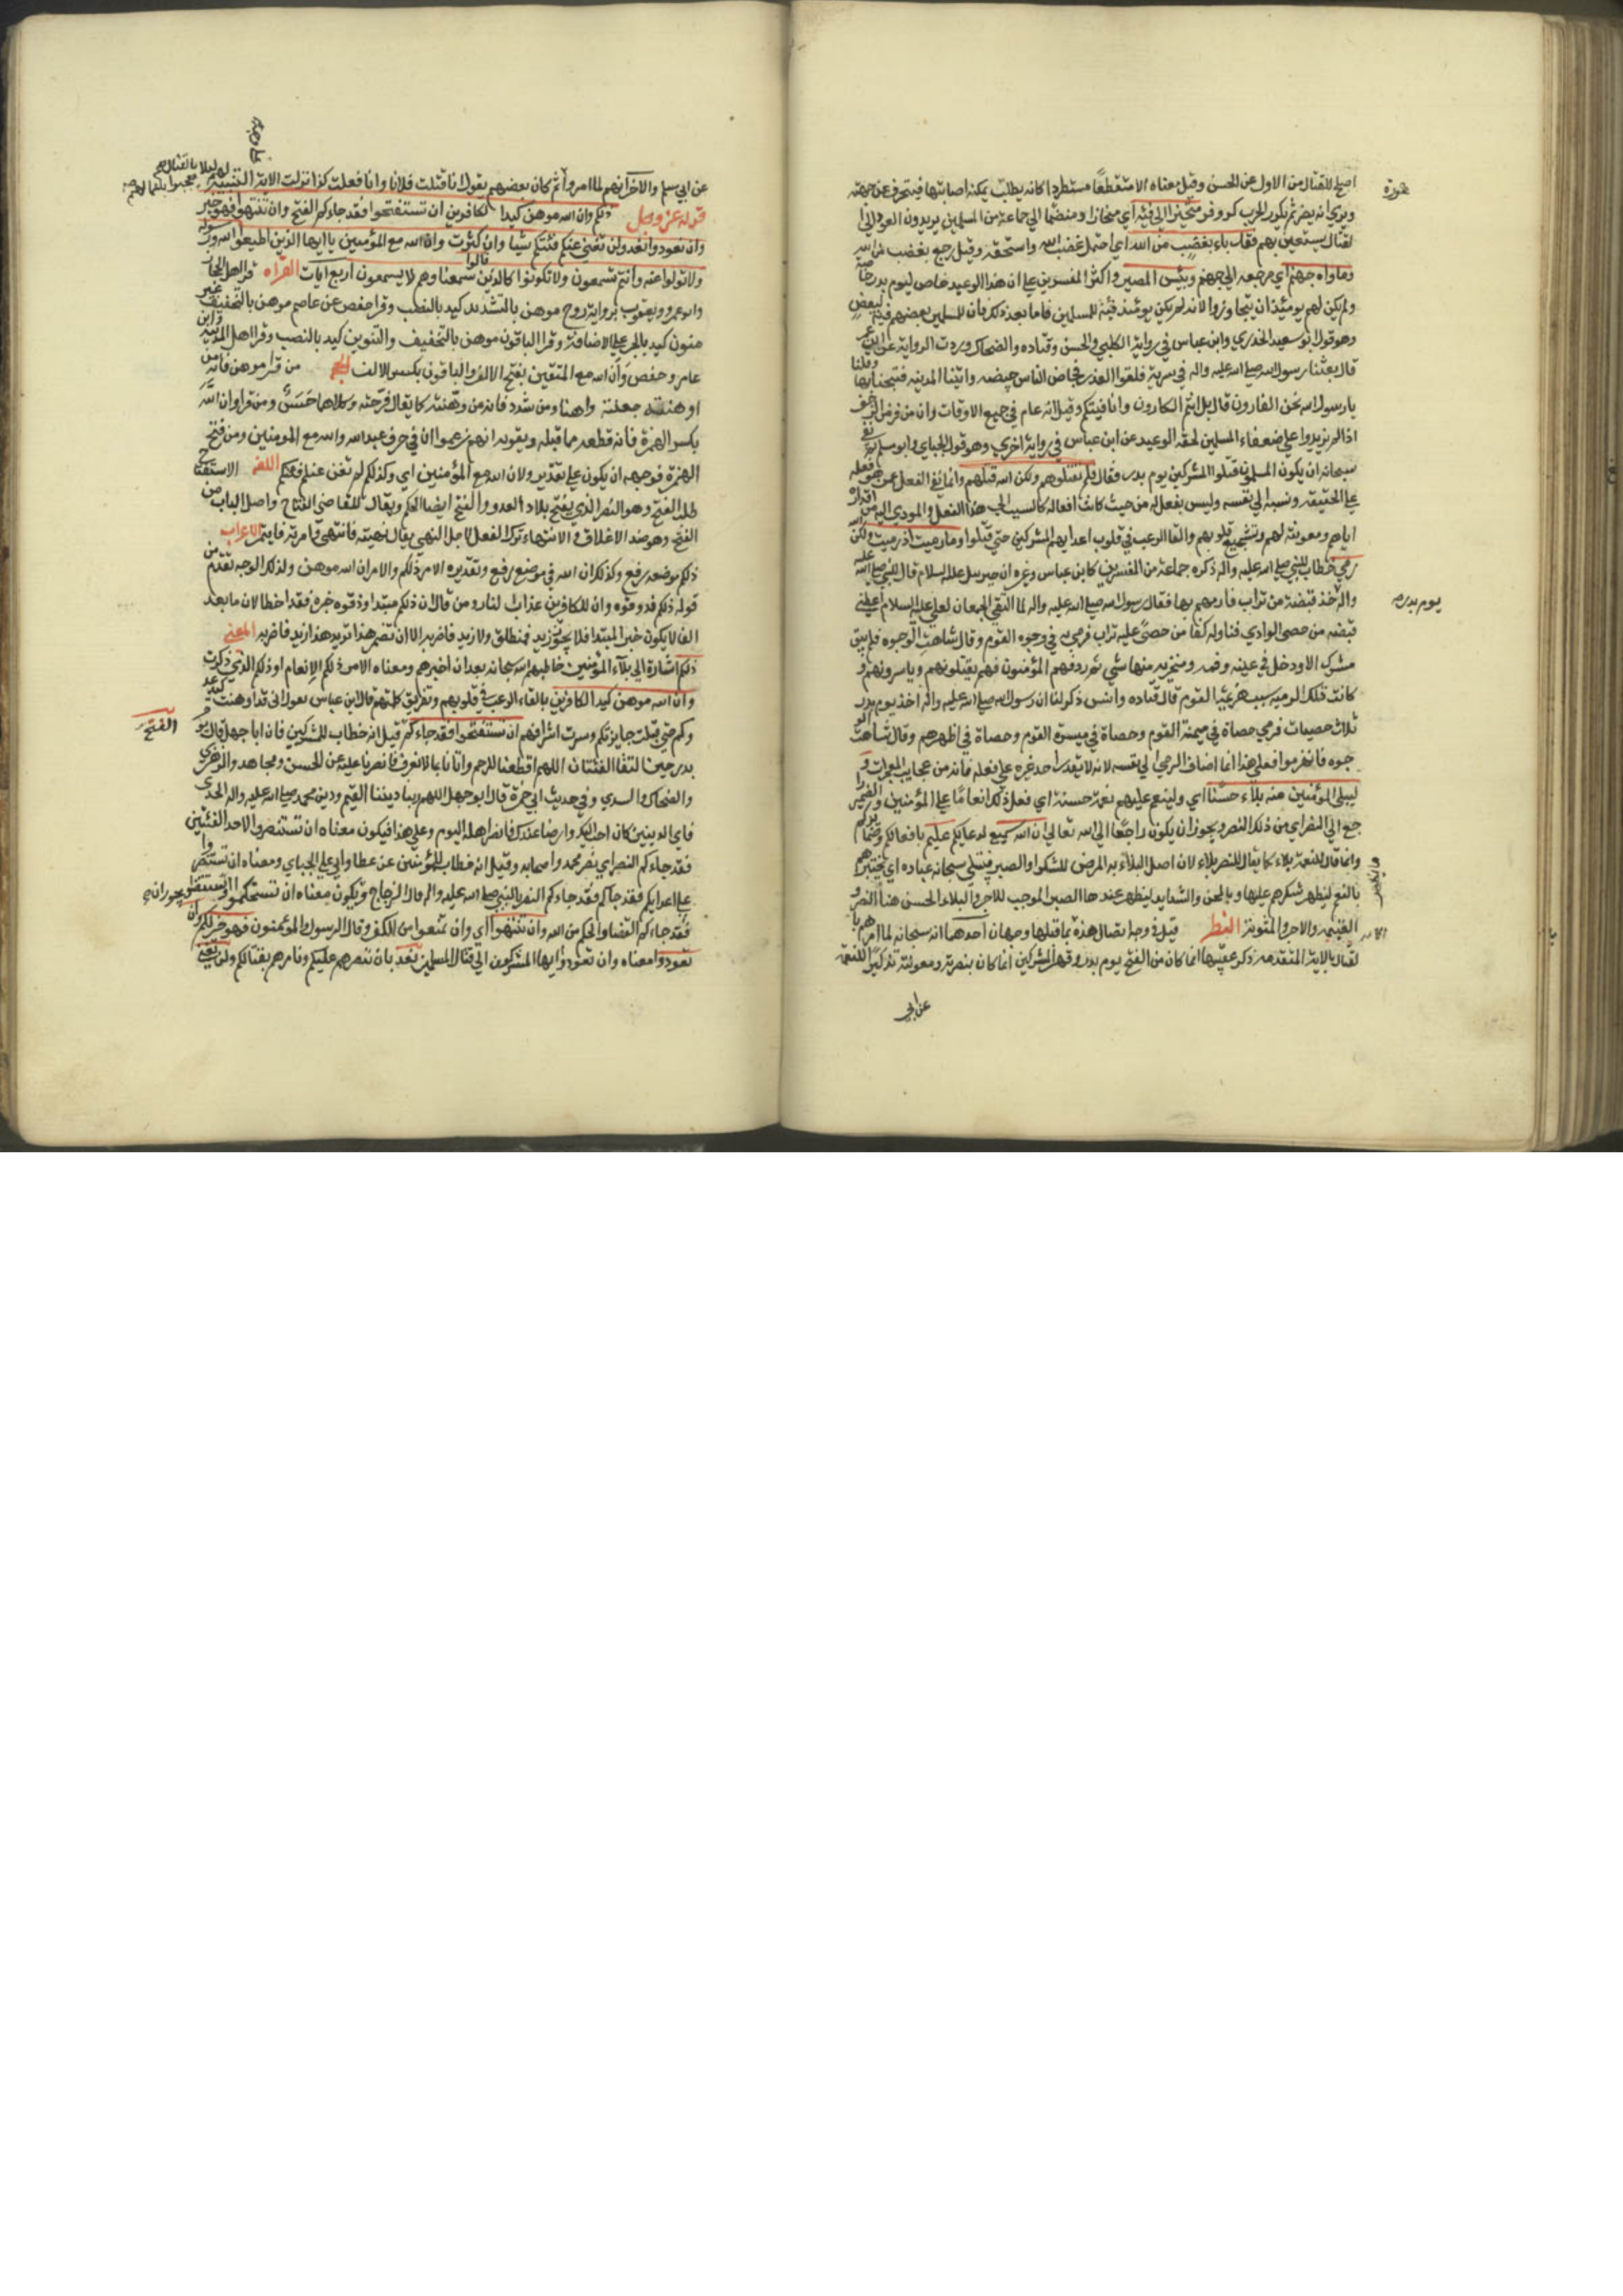 اصلح للقتال من الاول عن الحسن وقيل معناه الا منقطعا مستطردا كانه يطلب يمكنه اصابتها فيتحرف عن جهته
ويري انه يفر ثم يكر والحرب كر وفر او متحيزا الي فئة اي منحازا ومنضما الي جماعة من المسلمين يريدون العود الي ا
لقتال ليستعين بهم فقد باء بغضب من الله اي احتمل غضب الله واستحقه وقيل رجع بغضب من الله
وماواه جهنم اي مرجعه الي جهنم وبئس المصير واكثر المفسرين علي ان هذا الوعيد خاص ليوم بدر خاصة
ولم يكن لهم يومئذ ان ينحازوا لانه لم يكن يومئذ فئة للمسلمين فاما بعد ذلك فان المسلمين بعضهم فئة لبعض
وهو قول ابو سعيد الخدري وابن عباس في رواية الكلبي والحسن وقتاده والضحاك ووردت الرواية عن ابن عمر
قال بعثنا رسول الله صلي الله عليه واله في سرية فلقوا العدو فجاض الناس جيضه واتينا المدينه فتخبانا بها وقلنا
يا رسول الله نحن الفارون قال بل انتم الكارون وانا فيئتكم وقيل انه عام في جميع الاوقات وان من فر من الزحف
اذا لم يزيدوا علي ضعفاء المسلمين لحقه الوعيد عن ابن عباس في رواية اخري وهو قول الجباي وابو مسلم ثم نفي
سبحانه ان يكون المسلمون قتلوا المشركين يوم بدر فقال فلم تقتلوهم ولكن الله قتلهم وانما نفي الفعل عمن هو فعله
علي الحقيقه ونسبه الي نفسه وليس بفعل له من حيث كانت افعاله كالسبب لهذا الفعل والمودي اليه من اقداره
اياهم ومعونته لهم وتشجيع قلوبهم والقا الرعب في قلوب اعدايهم المشركين حتي قتلوا وما رميت اذ رميت ولكن الله
رمي خطاب للنبي صلي الله عليه واله ذكره جماعة من المفسرين كابن عباس وغيره ان جبريل عليه السلام قال للنبي صلي الله عليه
واله خذ قبضة من تراب فارمهم بها فقال رسول الله صلي الله عليه واله لما التقي الجمعان لعلي عليه السلام اعطني
قبضه من حصي الوادي فناوله كفا من حصي عليه تراب فرمي به في وجوه القوم وقال شاهت الوجوه فلم يبق
مشرك الا ودخل في عينه وفمه ومنخريه منها شي ثم ردفهم المؤمنون فهم يقتلونهم وياسرونهم و
كانت تلك الرمية سبب هزيمة القوم قال قتاده وانس ذكر لنا ان رسول الله صلي الله عليه واله اخذ يوم بدر
ثلاث حصيات فرمي حصاة في ميمنة القوم وحصاة في ميسرة القوم وحصاة في اظهرهم وقال شاهت الو
جوه فانهزموا فعلي هذا انما اضاف الرمي الي نفسه لانه لا يقدر احد غيره علي فعله فانه من عجايب المعجزات و
ليبلي المؤمنين منه بلاء حسنا اي ولينعم عليهم نعمة حسنة اي فعل ذلك انعاما علي المؤمنين والضمير را
جع الي النصر اي من ذلك النصر ويجوز ان يكون راجعا الي الله تعالي ان الله سميع لدعايكم عليم بافعالكم وضمايركم
وانما قال للنعمة بلاء كما يقال للنصر بلاء لان اصل البلاء
بالنعم ليظهر شكرهم عليها وبالمحن والشدايد ليظهر عندها الصبر الموجب للاجر والبلاء الحسن هنا النصر و
الغنيمه والاجر والمثوبة النظم قيل في وجه اتصال هذه بما قبلها وجهان احدهما انه سبحانه لما امرهم با
لقتال بالاية المتقدمه ذكر عقيبها انما كان من الفتح يوم بدر وقهر المشركين انما كان بنصرته ومعونته تذكيرا للنعمة
عن ابي
يوم بدر
عن ابي مسلم والاخر انهم لما امروا ثم كان بعضهم يقول انا قتلت فلانا وانا فعلت كذا نزلت الاية التنبيه
قوله عز وجل ذلكم وان الله موهن كيد الكافرين ان تستفتحوا فقد جاءكم الفتح وان تنتهوا فهو خير
وان تعودوا نعد ولن تغني عنكم فئتكم شيا ولو كثرت وان الله مع المؤمنين يا ايها الذين اطيعوا الله ورسوله
ولا تولوا عنه وانتم تسمعون ولا تكونوا كالذين قالوا سمعنا وهم لا يسمعون اربع ايات القراه قرا اهل الحجاز
وابو عمرو ويعقوب برواية روح موهن بالتشديد كيد بالنصب وقرا حفص عن عاصم موهن بالتخفيف غير
منون كيد بالجر علي الاضافة وقرا الباقون موهن بالتخفيف والتنوين كيد بالنصب وقرا اهل المدينه وابن
عامر وحفص وان الله مع المتقين بفتح الالف والباقون بكسر الالف الحجه من قرا موهن فانه من
اوهنته جعلته واهنا ومن شدد فانه من وهنته كما يقال فرحته وكلاهما حسن ومن قرا وان الله
بكسر الهمزة فانه قطعه مما قبله ويقويه انهم زعموا ان في حرف عبد الله والله مع المومنين ومن فتح
الهمزة فوجهه ان يكون علي تقدير ولان الله مع المؤمنين اي ولذلك لم تغن عنكم فئتكم اللغه الاستفتاح
طلب الفتح وهو النصر الذي يفتح بلاد العدو والفتح ايضا الحكم ويقال للقاضي الفتاح واصل الباب من
الفتح وهو ضد الاغلاق والانتهاء ترك الفعل لاجل النهي يقال نهيته فانتهي وامرته فايتمر الاعراب
ذلكم موضعه رفع وكذلك ان الله في موضع رفع وتقديره الامر ذلكم والامر ان الله موهن وكذلك الوجه تقدم من
قوله ذلكم فذوقوه وان للكافرين عذاب النار ومن قال ان ذلكم مبتدا وذوقوه خبره فقد اخطا لان ما بعد
الفا لا يكون خبر المبتدا فلا يجوز زيد فمنطلق ولا زيد فاضربه الا ان تضمر هذا تريد هذا زيد فاضربه المعني
ذلكم اشارة الي بلاء المؤمنين خاطبهم الله سبحانه بعد ان اخبرهم ومعناه الامر ذلكم الانعام او ذلكم الذي ذكرت
وان الله موهن كيد الكافرين بالقاء الرعب في قلوبهم وتفريق كلمتهم قال ابن عباس يقول اني قد اوهنت كيد عد
وكم حتي قتلت جبابرتكم واسرت اشرافهم ان تستفتحوا فقد جاءكم الفتح قيل انه خطاب للمشركين فان ابا جهل قال يو
بدر حين التقا الفئتان اللهم اقطعنا للرحم واتانا بما لا نعرف فانصرنا عليه عن الحسن ومجاهد والزهري
والضحاك والسدي وفي حديث ابي حمزة قال ابو جهل اللهم ربنا ديننا القديم ودين محمد صلي الله عليه واله الحدي
فاي الدينين كان احب اليك وارضا عندك فانصر اهله اليوم وعلي هذا فيكون معناه ان تستنصروا لاحد الفئتين
فقد جاءكم النصر اي نصر محمد واصحابه وقيل انه خطاب للمؤمنين عن عطا وابي علي الجباي ومعناه ان تستنصروا
علي اعدايكم فقد جاءكم النصر بالنبي صلي الله عليه واله قال الزجاج ويجوز ان يكون معناه ان تستحكموا
فقد جاءكم القضا والحكم من الله وان تنتهوا اي وان تمتعوا من الكفر وقتال الرسول والمؤمنون فهو خير لكم وان
تعودوا معناه وان تعودوا ايها المشركون الي قتال المسلمين نعد بان ننصرهم عليكم ونامرهم بقتالكم ولن تغني
الفتح